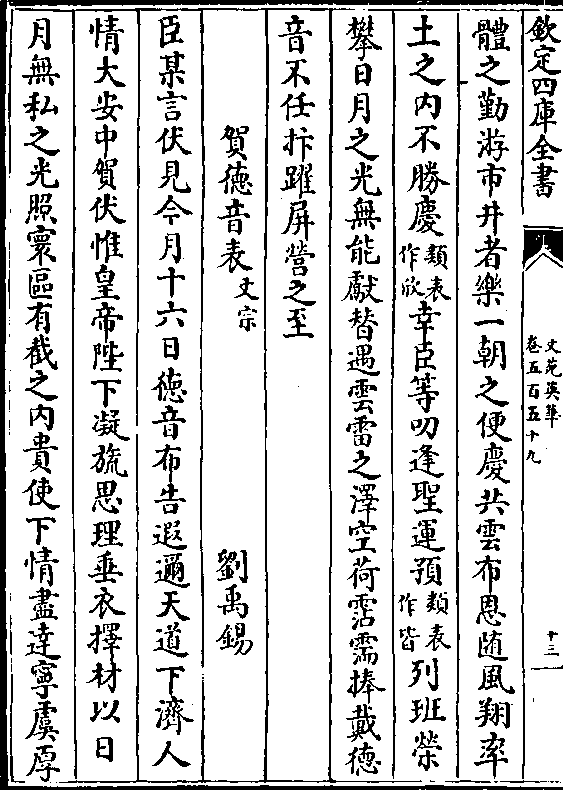 欽定四庫全書
文苑英華
卷五百五十九
十三
體之勤游市井者樂一朝之便慶共雲布恩随風翔率
土之内不勝慶類表作欣幸臣等叨逢聖運預類表作皆列班榮
攀日月之光無能獻替遇雲雷之澤空荷霑濡捧戴德
音不任抃躍屏營之至
賀德音表文宗 劉禹錫
臣某言伏見今月十六日德音布告遐邇天道下濟人
情大安中賀伏惟皇帝陛下凝旒思理垂衣擇材以日
月無私之光照寰區有截之内貴使下情盡達寧虞厚